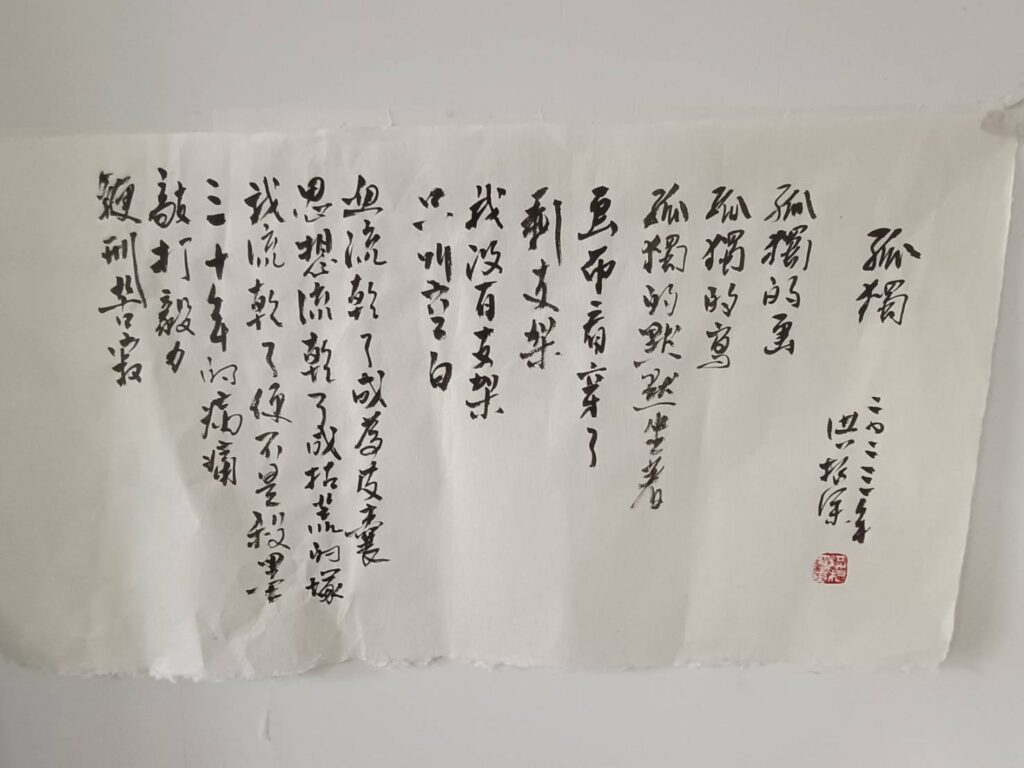 孤獨
二〇二三年
洪振
孤獨的畫
孤獨的寫
孤獨的默默坐著
畫布看穿了
剩支架
我沒有支架
只叫空白
血流乾了成為皮囊
思想流乾了成枯荒的塚
我流乾了便不是殺墨
三十年的病痛
敲打毅力
鞭刑苦寂